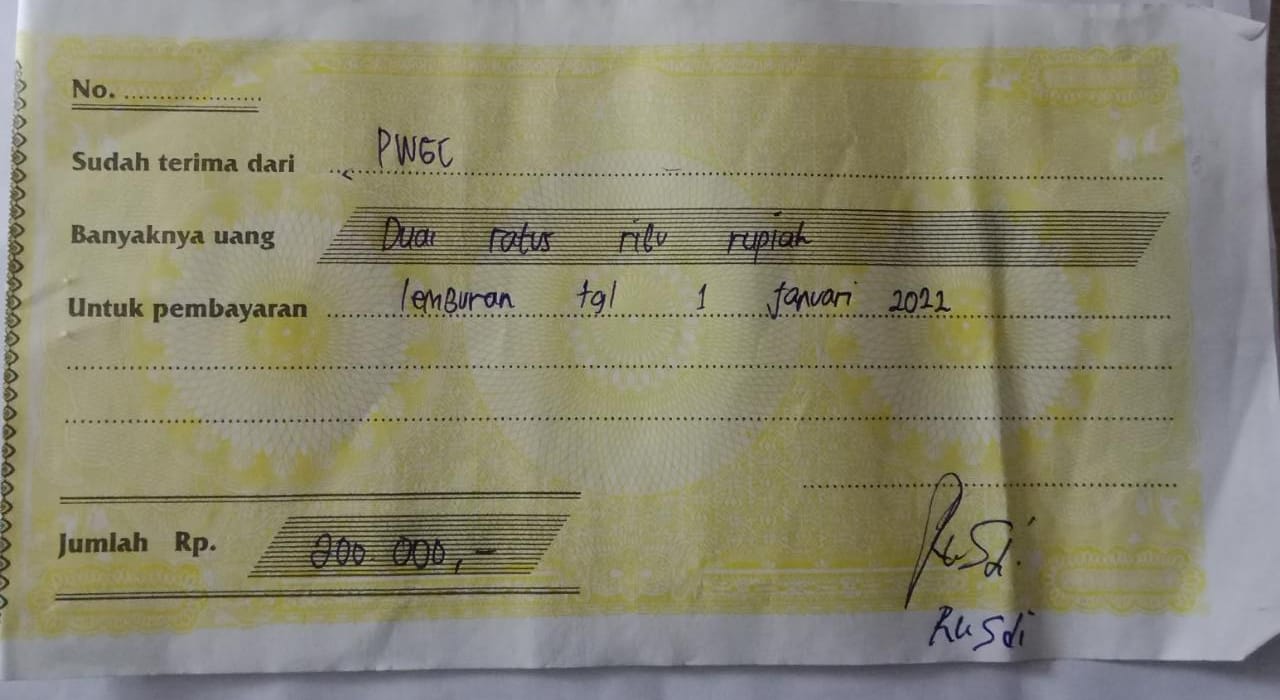 No. ....................
Sudah terima dari PWGC
Banyaknya uang Dua ratus ribu rupiah
Untuk pembayaran lemburan tgl 1 Januari 2022
Jumlah Rp. 200.000,-
Rusdi.
Rusdi